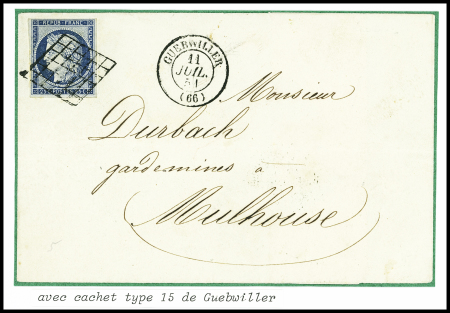 REPUB. FRANC.
25 C POSTES 25 C
GUEBWILLER
11
JUIL.
51
(66)
Monsieur
Durbach
gardemines à
Mulhouse
avec cachet type 15 de Guebwiller